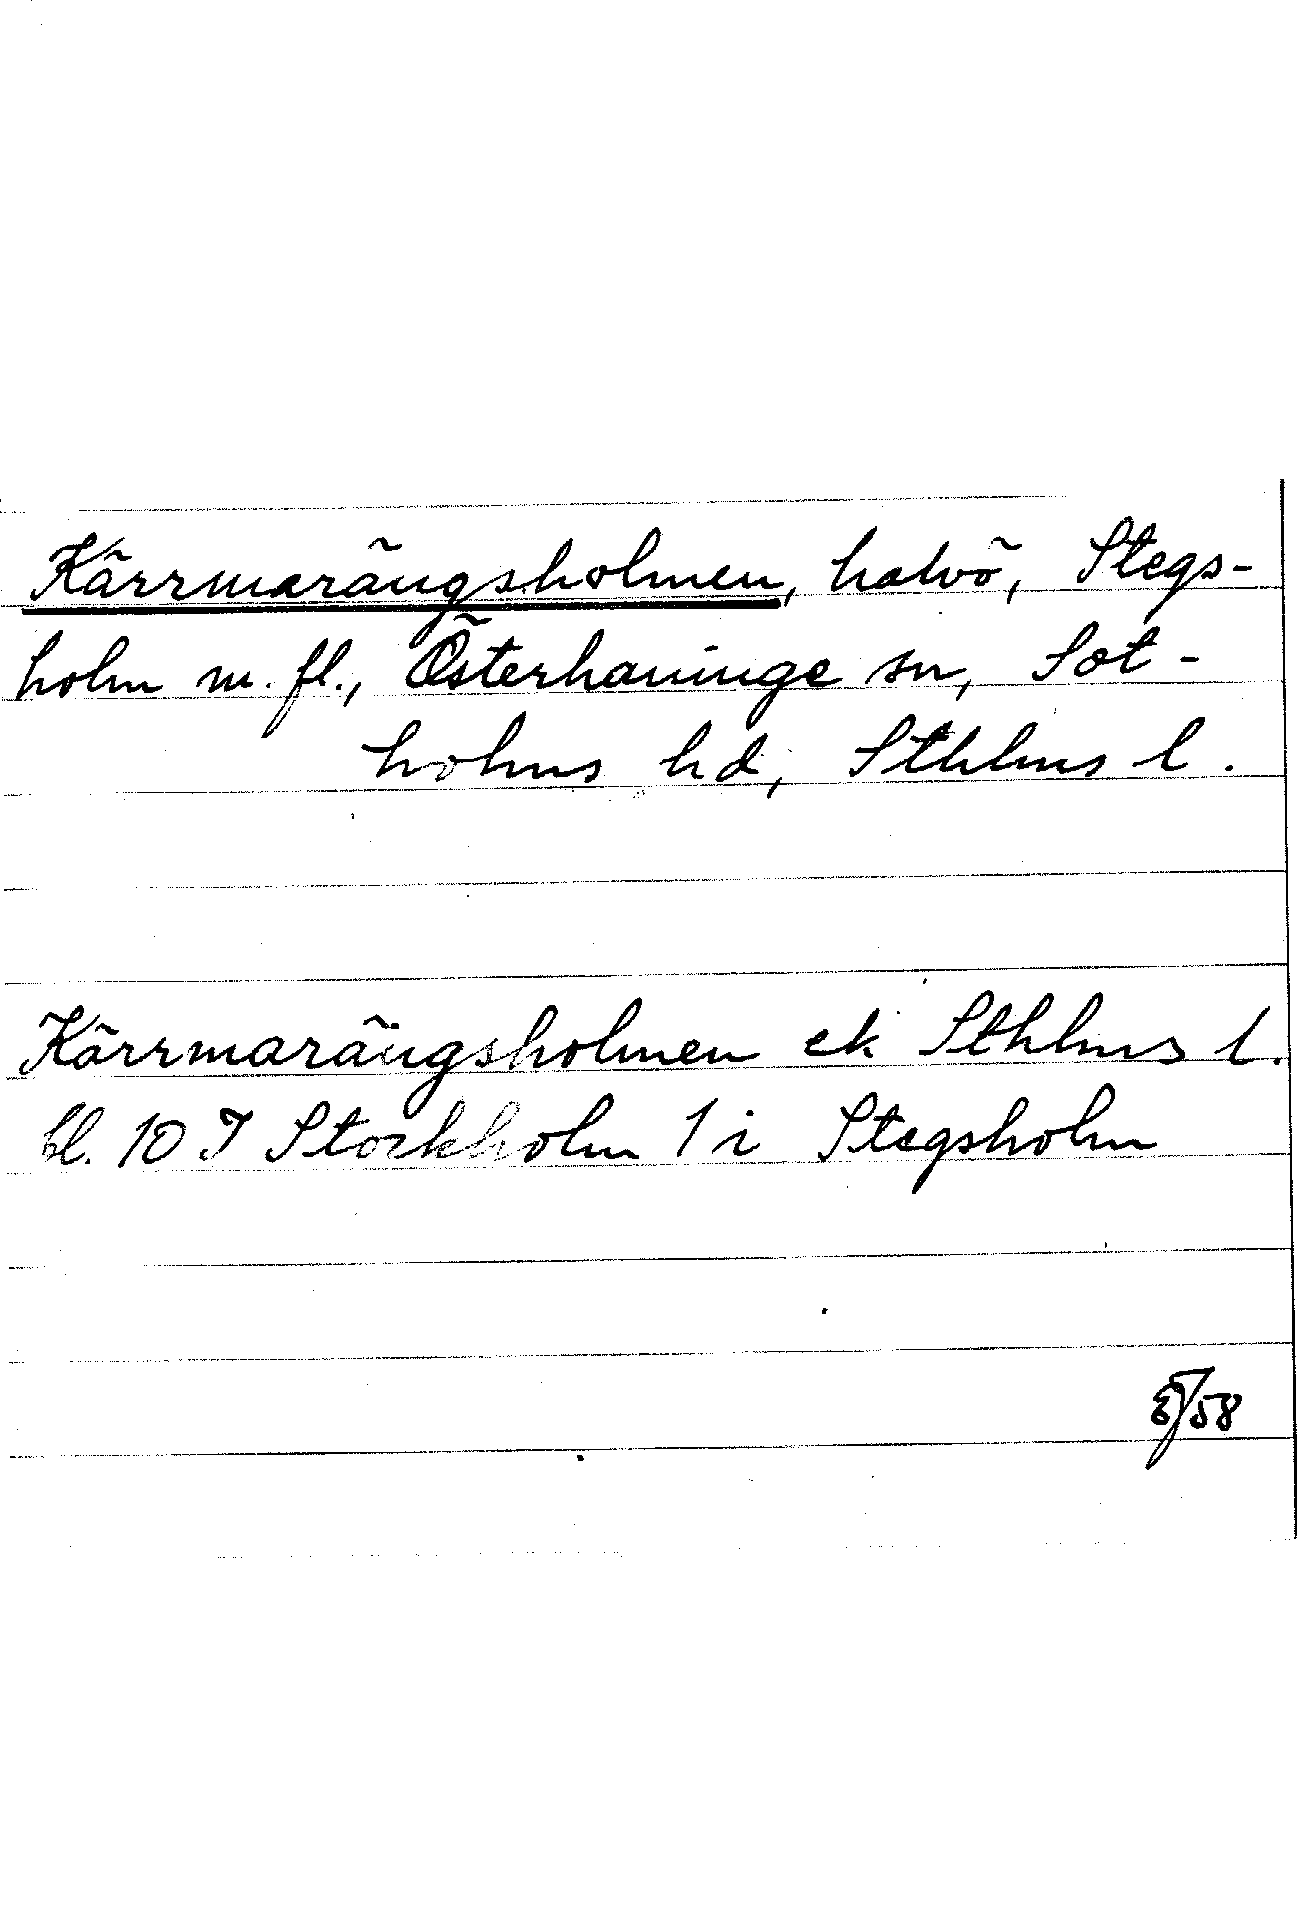 Kärrmarängsholmen, halvö, Stegs-
holm m. fl., Österhaninge sn, Sot-
holms hd, Sthlms l.
Kärrmarängsholmen ek Sthlms l.
bl. 10 I Stockholm 1 i Stegsholm
/58